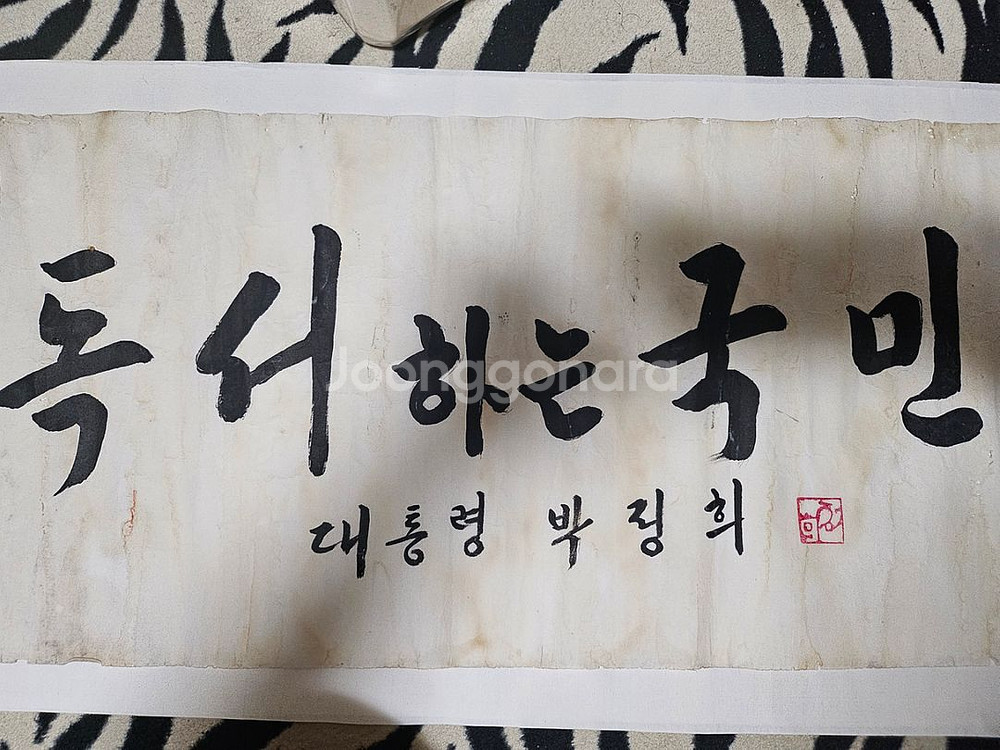 독서하는국민
Joonggonara
대통령 박정희